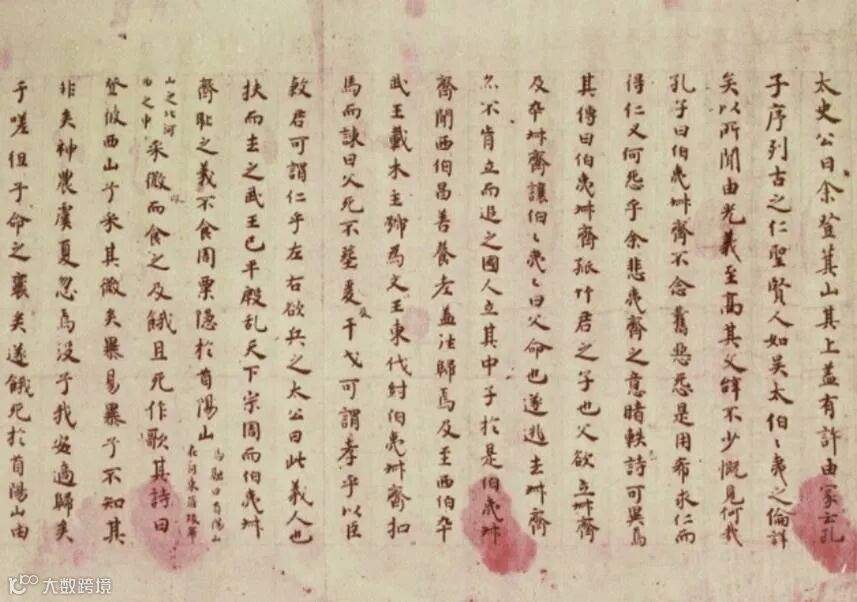 太史公曰余登箕山其上蓋有許由冢云孔
子序列古之仁聖賢人如吳太伯〻夷之倫詳
矣以所聞由光義至高其文辞不少慨見何哉
孔子曰伯夷叔齊不念舊惡怨是用希求仁而
得仁又何怨乎余悲夷齊之意睹軼詩可異焉
其傳曰伯夷叔齊孤竹君之子也父欲立叔齊
及卒叔齊讓伯〻夷〻曰父命也遂逃去叔齊
亦不肯立而追之國人立其中子於是伯夷叔
齊聞西伯昌善養老盍往歸焉及至西伯卒
武王載木主號為文王東伐紂伯夷叔齊扣
馬而諫曰父死不葬爰及干戈可謂孝乎以臣
弒君可謂仁乎左右欲兵之太公曰此義人也
扶而去之武王已平殷乱天下宗周而伯夷叔
齊恥之義不食周粟隱於首陽山
馬融曰首陽山
在河東蒲坂華
山之北河
曲之中
采薇而食之及餓且死作歌其詩曰
登彼西山兮采其薇矣暴易暴兮不知其
非矣神農虞夏忽焉没兮我安適歸矣
于嗟徂兮命之衰矣遂餓死於首陽山由
大数跨境